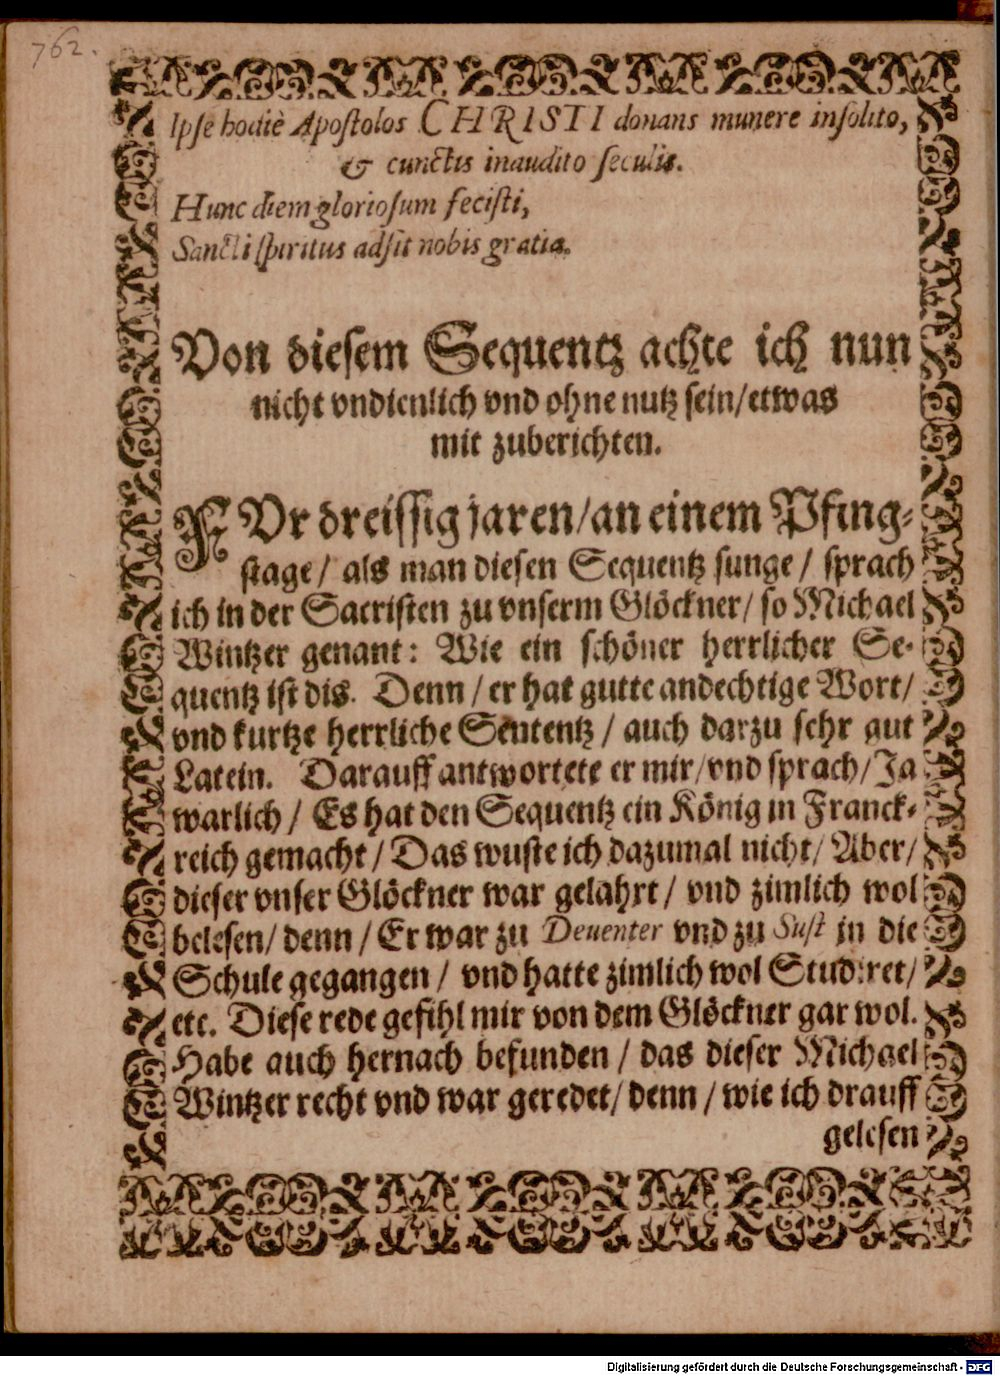 762.
Ipse hodiè Apostolos CHRISTI donans munere insolito,
& cunctis inaudito seculis.
Hunc diem gloriosum fecisti,
Sancti spiritus adsit nobis gratia.
Von diesem Sequentz achte ich nun
nicht vndienlich vnd ohne nutz sein/etwas
mit zuberichten.
FVr dreissig jaren/an einem Pfing-
stage/ als man diesen Sequentz sunge / sprach
ich in der Sacristen zu vnserm Glöckner/ so Michael
Wintzer genant: Wie ein schöner herrlicher Se-
quentz ist dis. Denn / er hat gutte andechtige Wort/
vnd kurtze herrliche Sententz / auch darzu sehr gut
Latein. Darauff antwortete er mir/vnd sprach/Ja
warlich / Es hat den Sequentz ein König in Franck-
reich gemacht / Das wuste ich dazumal nicht/ Aber/
dieser vnser Glöckner war gelahrt / vnd zimlich wol
belesen/ denn / Er war zu Deuenter vnd zu Sust in die
Schule gegangen / vnd hatte zimlich wol Studiret/
etc. Diese rede gefihl mir von dem Glöckner gar wol.
Habe auch hernach befunden / das dieser Michael
Wintzer recht vnd war geredet/ denn / wie ich drauff
gelesen
Digitalisierung gefördert durch die Deutsche Forschungsgemeinschaft - DFG